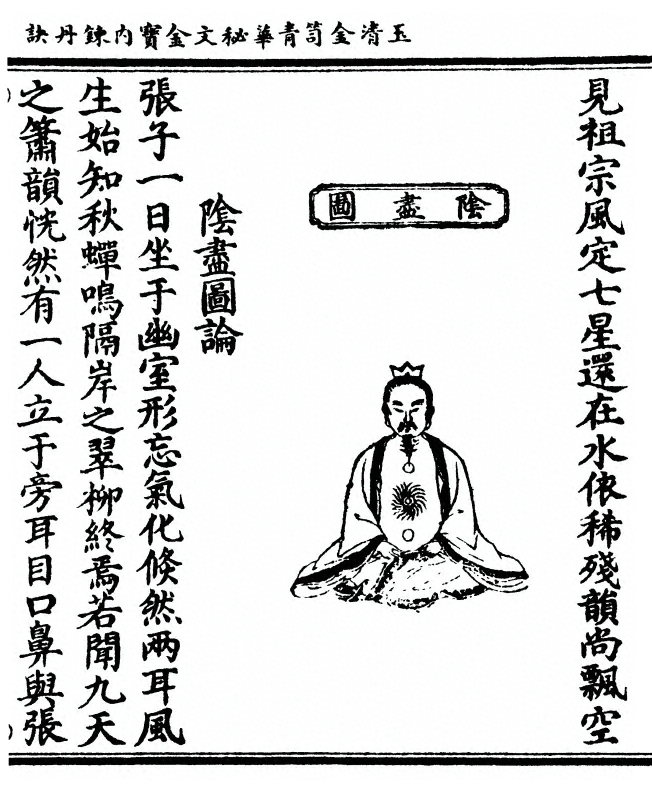 玉清金笥青華秘文金寶內鍊丹訣
見祖宗風定七星還在水依稀殘韻尚飄空
陰盡圖
陰盡圖論
張子一日坐于幽室形忘氣化倏然兩耳風
生始知秋蟬鳴隔岸之翠柳終焉若聞九天
之簫韻恍然有一人立于旁耳目口鼻與張